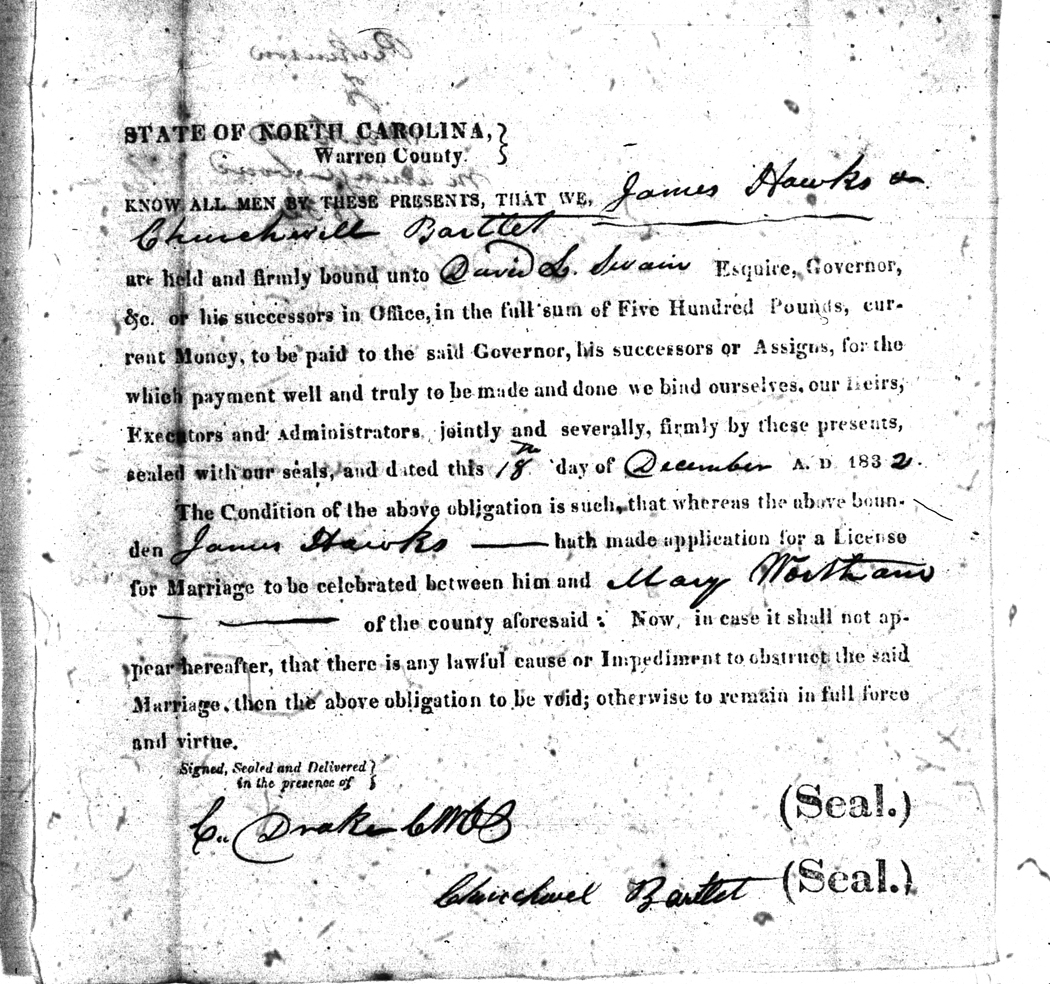 STATE OF NORTH CAROLINA,
Warren County.
KNOW ALL MEN BY THESE PRESENTS, THAT WE, James Hawks &
Churchwill Bartlet
are held and firmly bound unto David L. Swain Esquire, Governor,
&c. or his successors in Office, in the full sum of Five Hundred Pounds, cur-
rent Money, to be paid to the said Governor, his successors or Assigns, for the
which payment well and truly to be made and done we bind ourselves, our Heirs,
Executors and Administrators, jointly and severally, firmly by these presents,
sealed with our seals, and dated this 18th day of December A. D 1832.
The Condition of the above obligation is such, that whereas the above boun-
den James Hawks hath made application for a License
for Marriage to be celebrated between him and Mary Wortham
of the county aforesaid: Now, in case it shall not ap-
pear hereafter, that there is any lawful cause or Impediment to obstruct the said
Marriage, then the above obligation to be void; otherwise to remain in full force
and virtue.
Signed, Sealed and Delivered
in the presence of
(Seal.)
C. Drake
Churchwel Bartlet (Seal.)